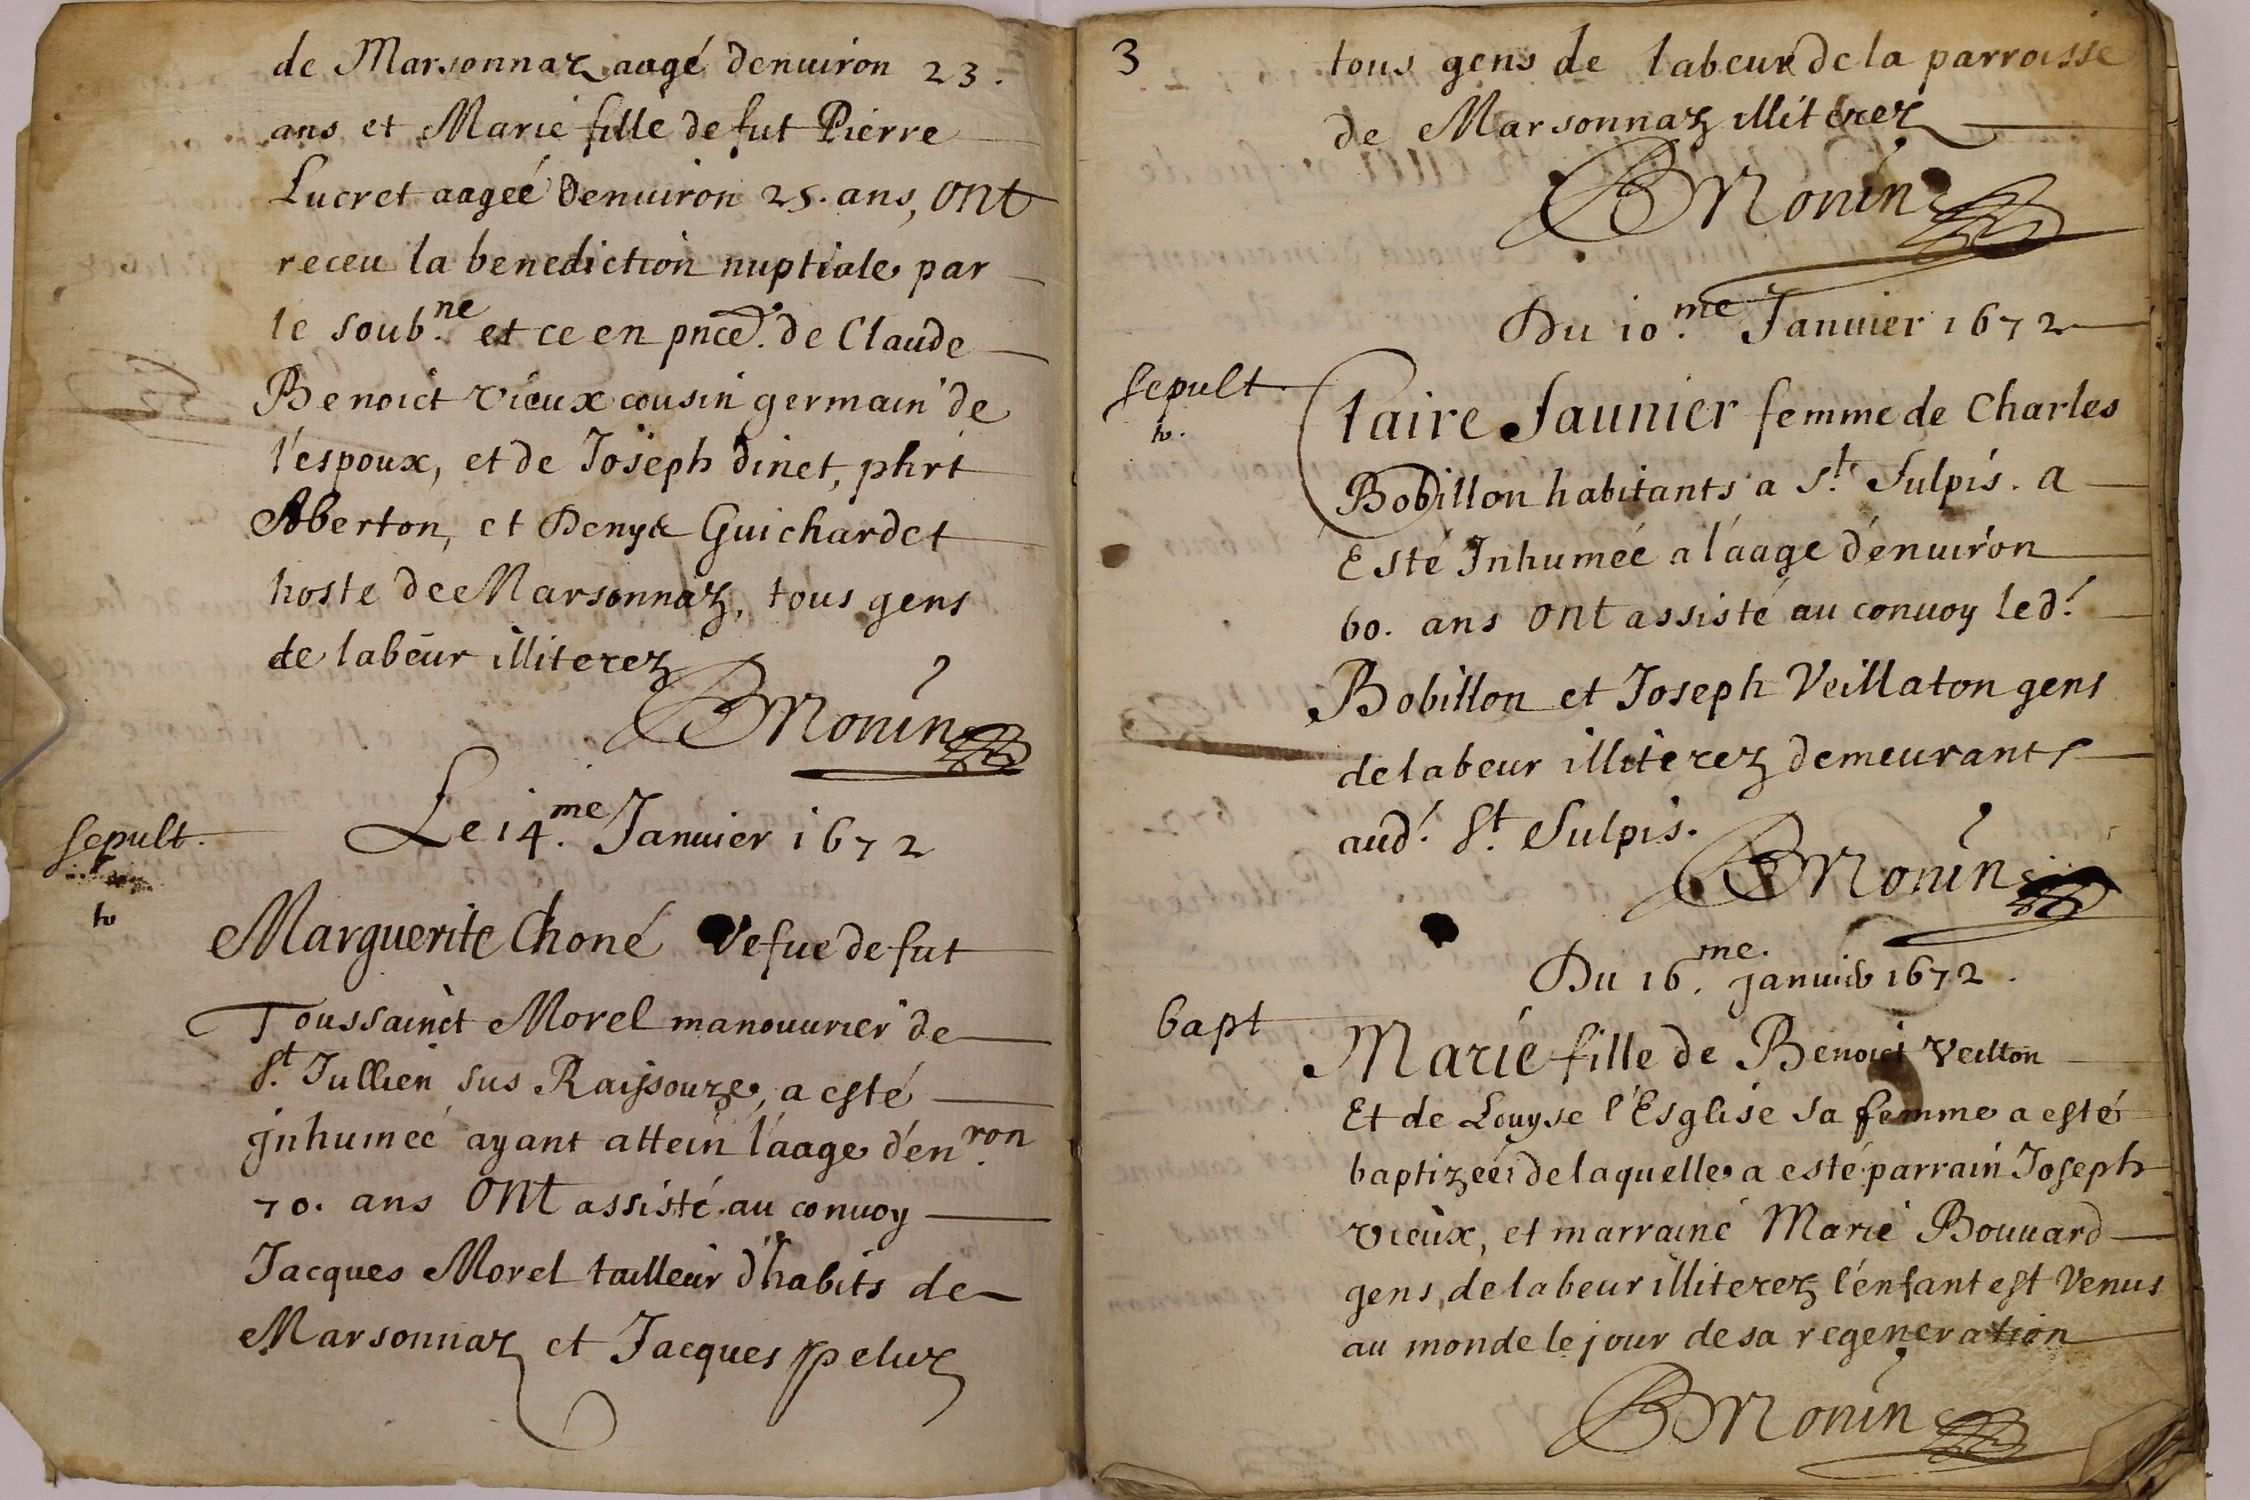 de Marsonnaz aagé denuiron 23.
ans et Marie fille de fut Pierre
Lucret aageé denuiron 25. ans, ont
receu la benediction nuptiale par
le soub.ne et ce en pnce. de Claude
Benoict vieux cousin germain de
l'espoux, et de Joseph dinet, phrt
Aberton, et Denys Guichardet
hoste de Marsonnaz, tous gens
de labeur illiterez
BMonin
Le 14.me Januier 1672
sepult.
Marguerite Choné vefue de fut
Toussainct Morel manouurier de
St. Jullien sus Raissouze, a esté
Jnhumeé ayant attein l'aage d'en.ron
70. ans ont assisté au conuoy
Jacques Morel tailleur d'habits de
Marsonnaz et Jacques peluz
3
tous gens de labeur de la parroisse
de Marsonnaz illiterez
BMonin
Du 10.me Januier 1672
sepult.
Claire Saunier femme de Charles
Bobillon habitants a St. Sulpis. a
Esté Inhumeé a l'aage d'enuiron
60. ans ont assisté au conuoy led.t
Bobillon et Joseph Veillaton gens
de labeur illiterez demeurants
aud.t St. Sulpis.
BMonin
Du 16.me Januier 1672.
bapt
Marie fille de Benoict Veillon
Et de Louyse l'Esglise sa femme a esté
baptizeé, de laquelle a esté parrain Joseph
vieux, et marraine Marie Bouuard
gens de labeur illiterez l'enfant est venus
au monde le jour de sa regeneration
BMonin